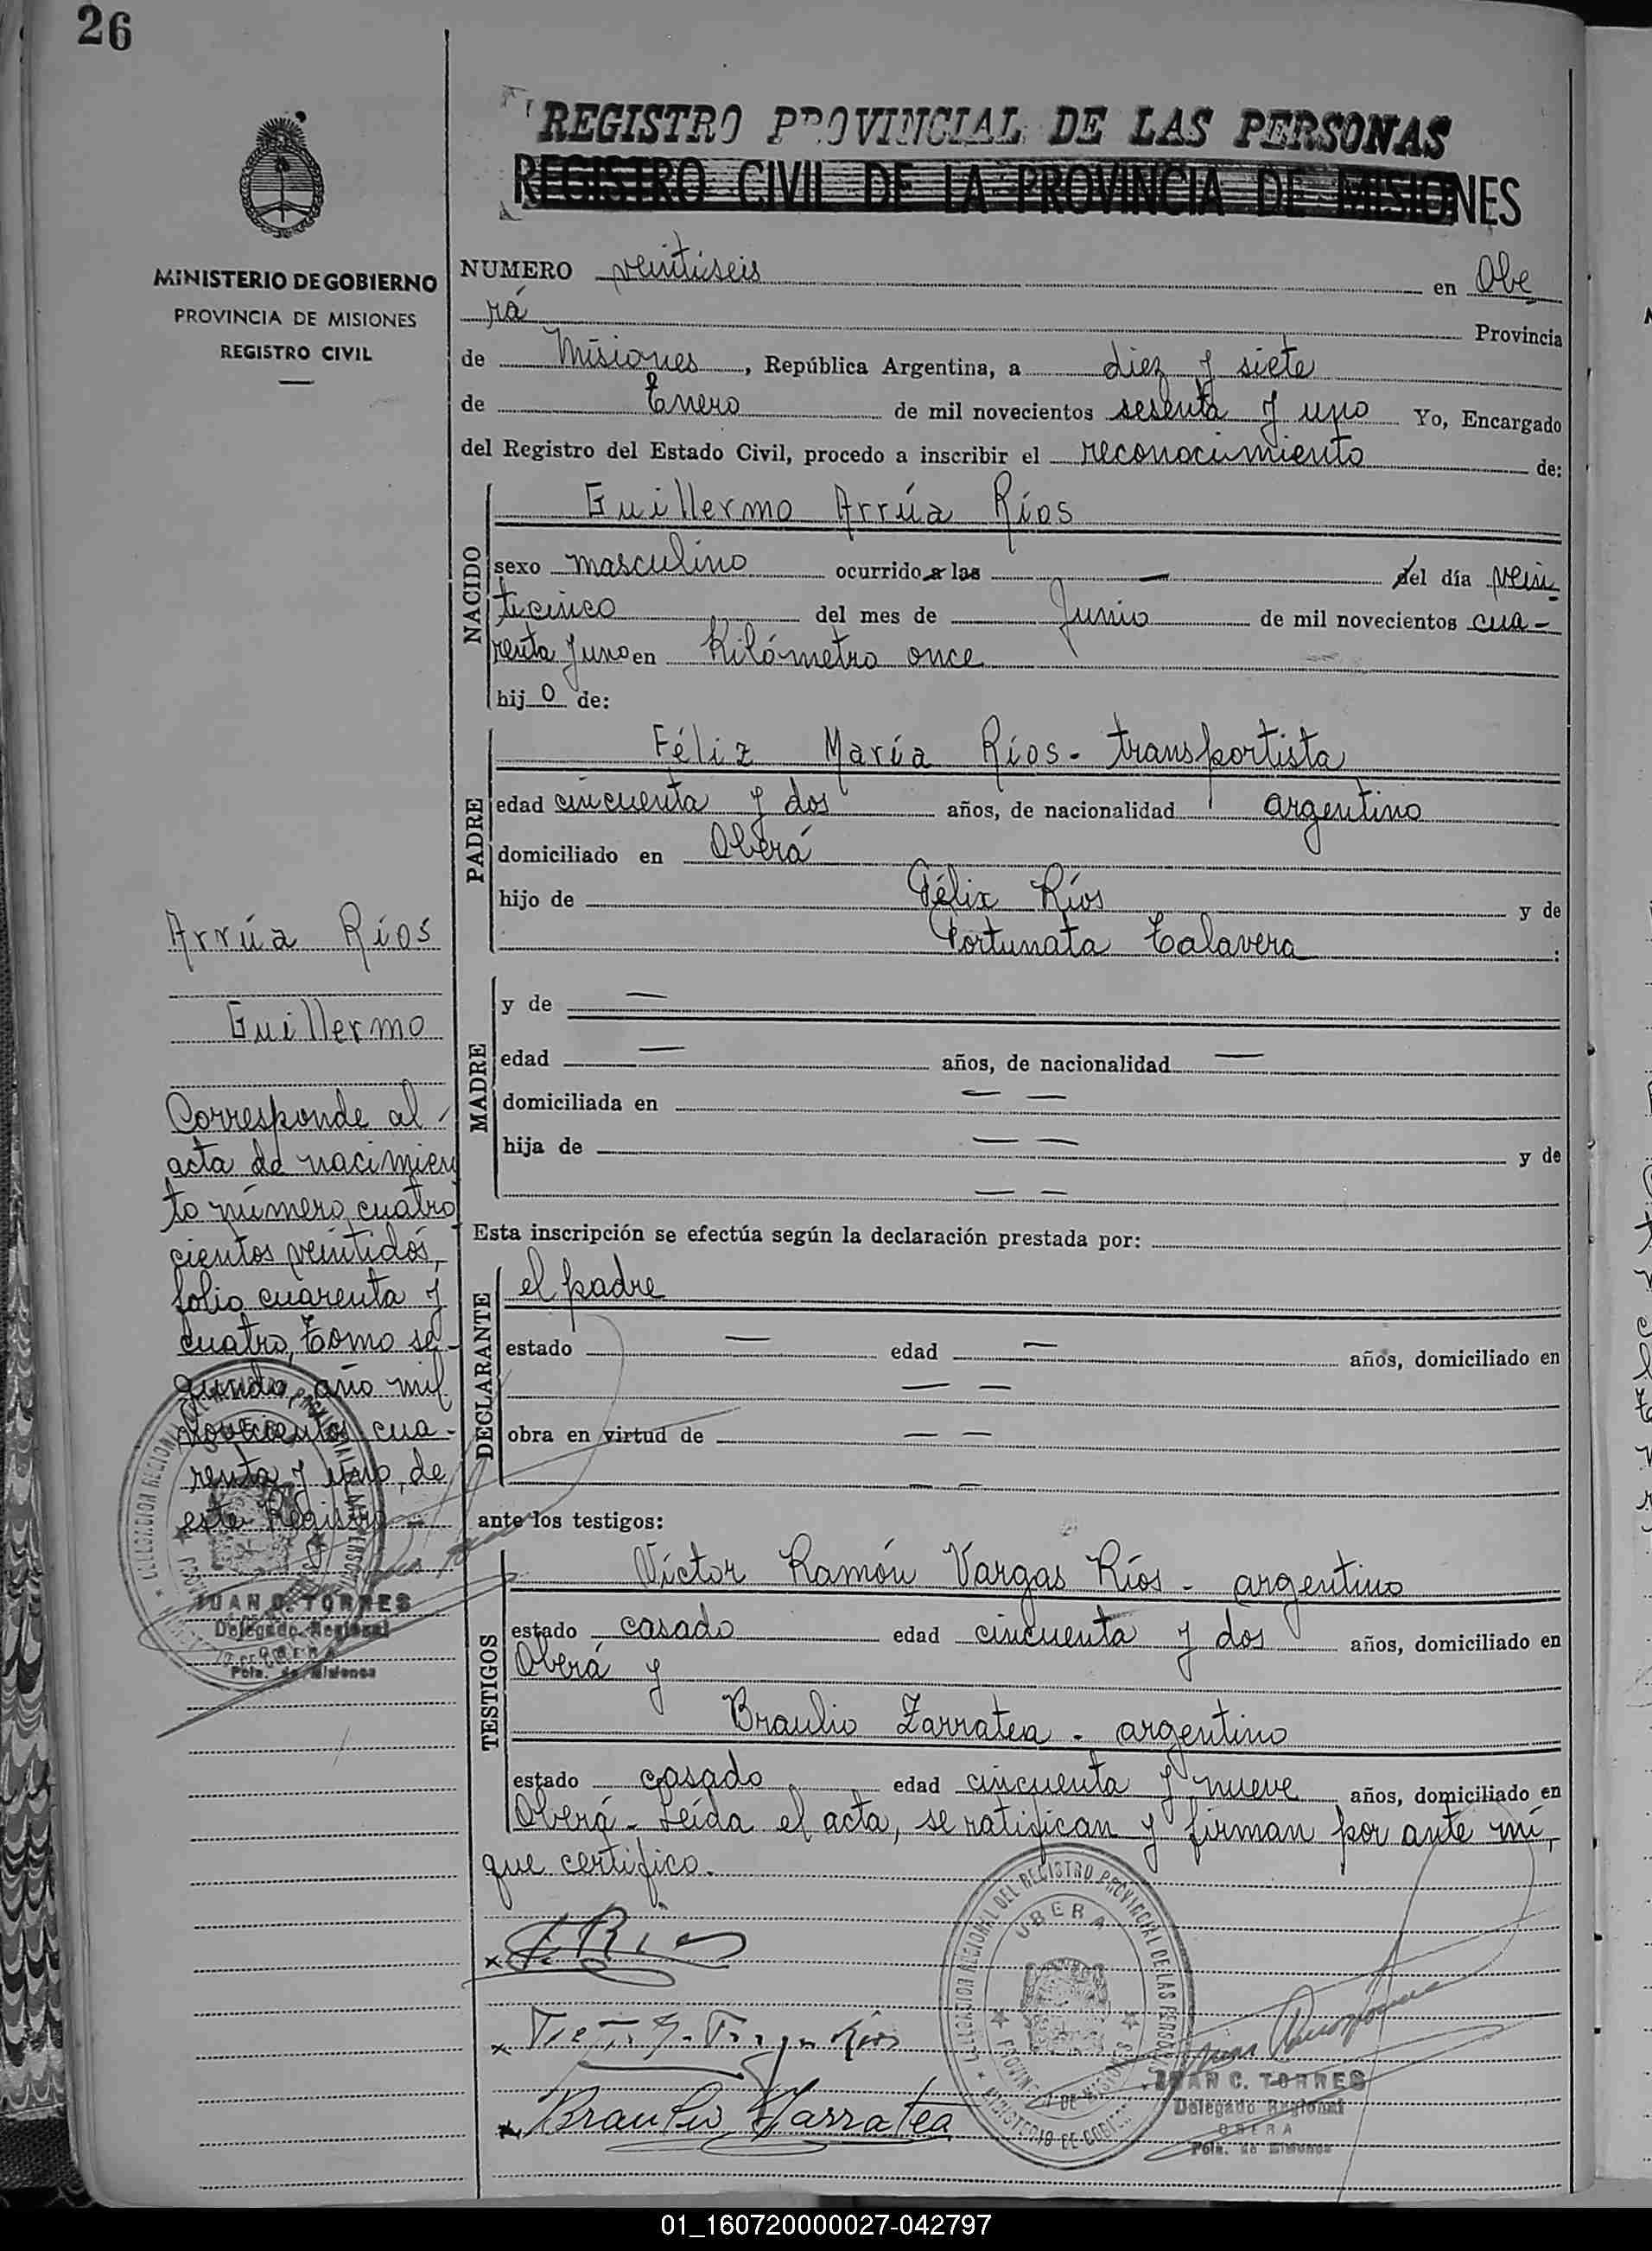 26
REGISTRO PROVINCIAL DE LAS PERSONAS
REGISTRO CIVIL DE LA PROVINCIA DE MISIONES
MINISTERIO DE GOBIERNO
PROVINCIA DE MISIONES
REGISTRO CIVIL
NUMERO veintiseis en Obe
rá Provincia
de Misiones, República Argentina, a diez y siete
de Enero de mil novecientos sesenta y uno Yo, Encargado
del Registro del Estado Civil, procedo a inscribir el reconocimiento de:
NACIDO
Guillermo Arrúa Ríos
sexo masculino ocurrido a las — del día vein
ticinco del mes de Junio de mil novecientos cua-
renta y uno en Kilómetro once
hijo de:
PADRE
Féliz María Ríos - transportista
edad cincuenta y dos años, de nacionalidad argentino
domiciliado en Oberá
hijo de Félix Ríos y de
Fortunata Talavera :
MADRE
y de —
edad — años, de nacionalidad —
domiciliada en — —
hija de — — y de
— —
Esta inscripción se efectúa según la declaración prestada por:
DECLARANTE
el padre
estado — edad — años, domiciliado en
— —
obra en virtud de — —
— —
ante los testigos:
TESTIGOS
Víctor Ramón Vargas Ríos - argentino
estado casado edad cincuenta y dos años, domiciliado en
Oberá y
Braulio Zarratea - argentino
estado casado edad cincuenta y nueve años, domiciliado en
Oberá - Leída el acta, se ratifican y firman por ante mí,
que certifico.
Arrúa Ríos
Guillermo
Corresponde al
acta de nacimien
to número cuatro
cientos veintidós,
folio cuarenta y
cuatro, tomo se-
gundo, año mil
novecientos cua-
renta y uno, de
este Registro -
JUAN C. TORRES
Delegado Regional
OBERA
Pcia. de Misiones
x F. Rios
x Ríos
x Braulio Zarratea
DELEGACION REGIONAL DEL REGISTRO PROVINCIAL DE LAS PERSONAS
OBERA
PROVINCIA DE MISIONES
MINISTERIO DE GOBIERNO
JUAN C. TORRES
Delegado Regional
OBERA
Pcia. de Misiones
01_160720000027-042797